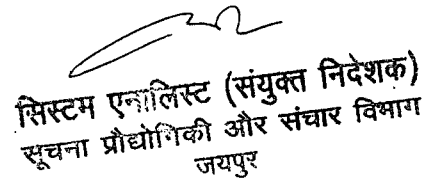 सिस्टम एनालिस्ट (संयुक्त निदेशक)
सूचना प्रौद्योगिकी और संचार विभाग
जयपुर